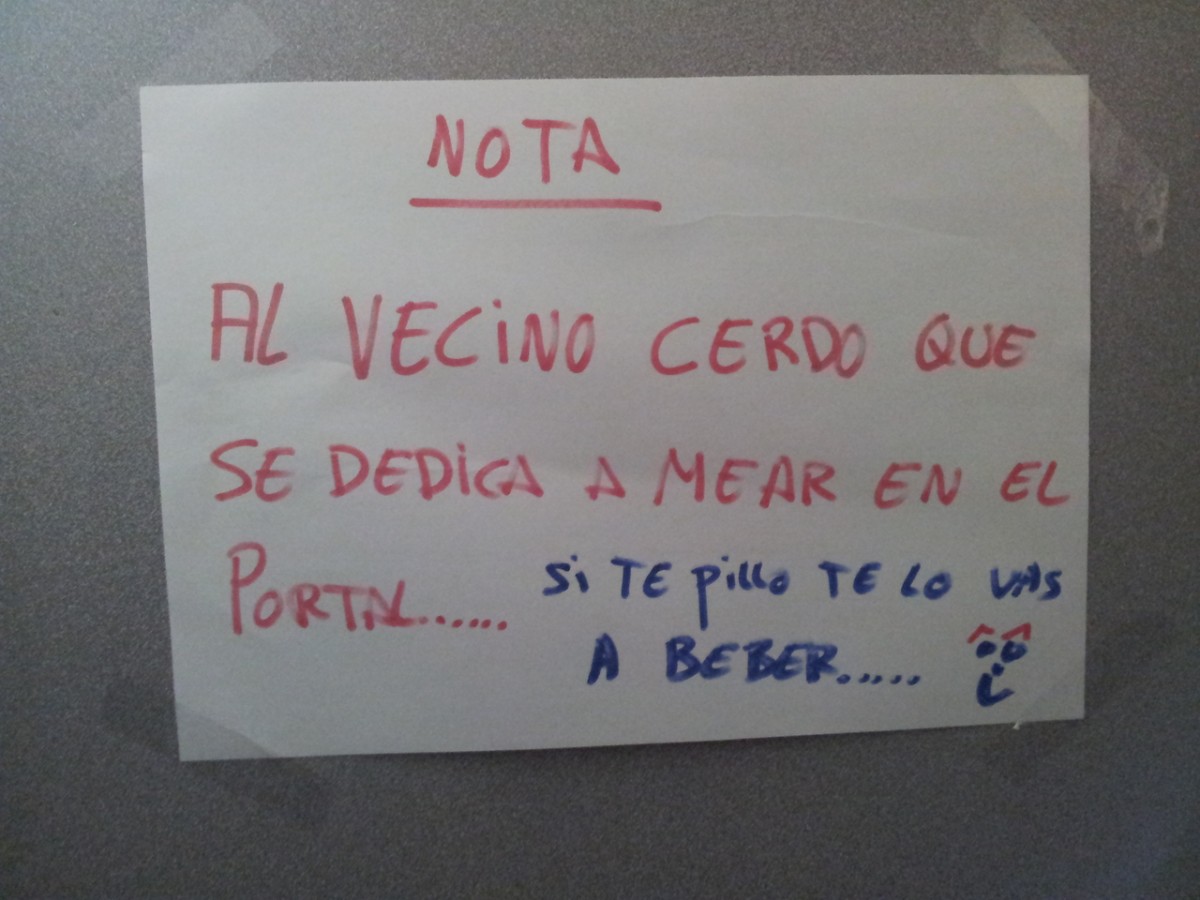 NOTA
AL VECiNO CERDO QUE
SE DEDiCA A MEAR EN EL
PORTAL...... Si TE pillo TE LO VAS
A BEBER.....